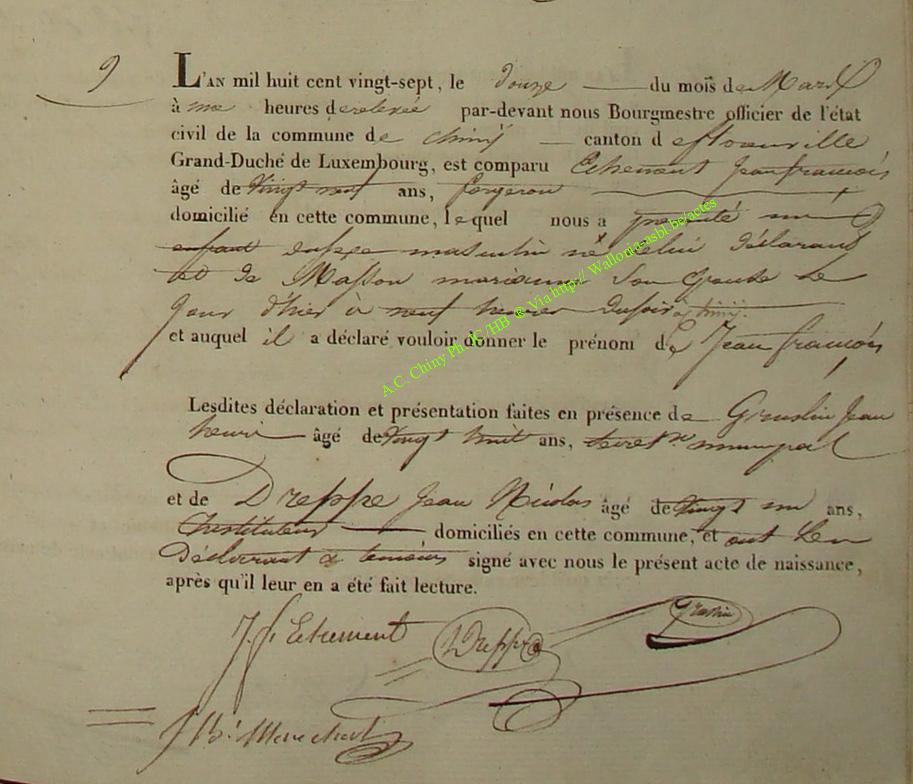 9
L'AN mil huit cent vingt-sept, le douze du mois de Mars
à une heures de relevée par-devant nous Bourgmestre officier de l'état
civil de la commune de chiny canton d eflorenville
Grand-Duché de Luxembourg, est comparu Echement Jean françois
âgé de vingt neuf ans, forgeron
domicilié en cette commune, lequel nous a presenté un
enfant du sexe masculin né de lui déclarant
et de Masson marianne Son épouse le
jour d'hier à neuf heures du soir à chiny.
et auquel il a déclaré vouloir donner le prénom de Jean françois
Lesdites déclaration et présentation faites en présence de Jean
henri âgé de vingt huit ans, municipal
et de Dreppe Jean Nicolas âgé de vingt un ans,
Instituteur domiciliés en cette commune, et ont Les
Déclarant & temoins signé avec nous le présent acte de naissance,
après qu'il leur en a été fait lecture.
J. f. Echement Dreppe
A.C. Chiny Ph JC/HB @ Via http:// Wallonia-asbl.be/actes